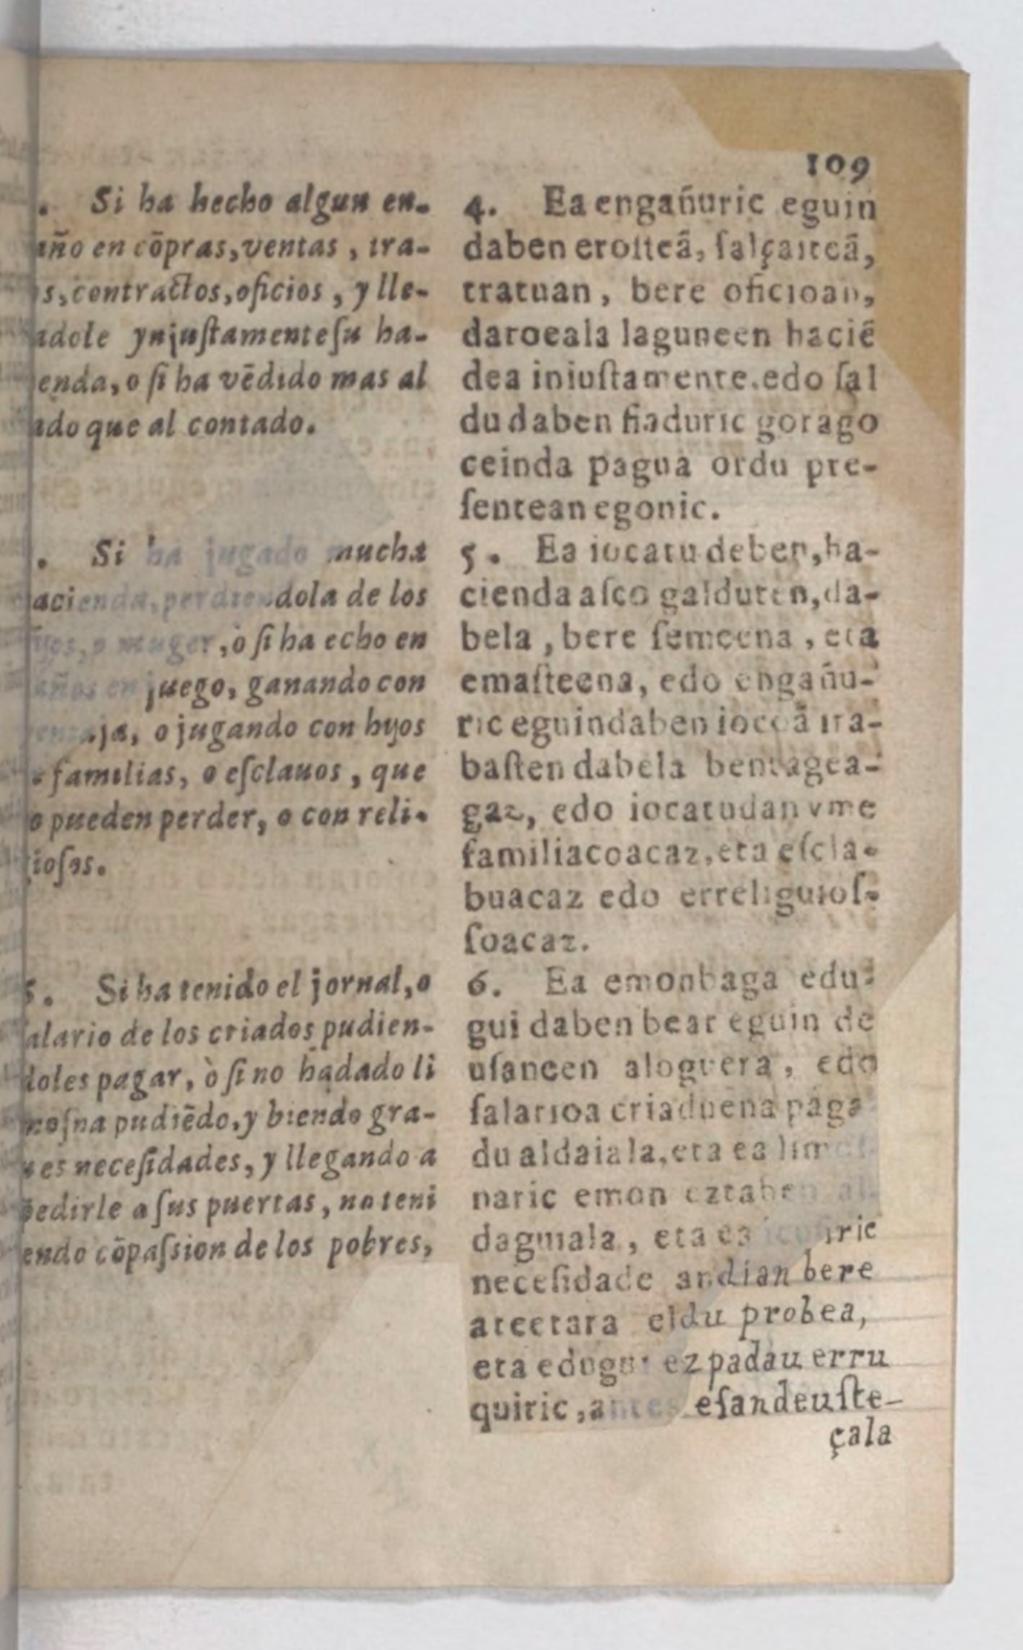 109
. Si ha hecho algun en-
año en cõpras, ventas, tra-
s, contractos, oficios, y lle-
adole ynjuſtamente ſu ha-
enda, o ſi ha vẽdido mas al
ado que al contado.
. Si ha jugado mucha
acienda, perdiendola de los
yos, o muger, ò ſi ha echo en
años en juego, ganando con
entaja, o jugando con hijos
familias, o eſclauos, que
o pueden perder, o con reli-
gioſos.
5. Si ha tenido el jornal, o
alario de los criados pudien-
doles pagar, ò ſi no ha dado li
moſna pudiẽdo, y biendo gra-
ues neceſidades, y llegando a
pedirle a ſus puertas, no teni
endo cõpaſsion de los pobres,
4. Ea engañuric eguin
daben eroiteã, ſalçaiteã,
tratuan, bere oficioan,
daroeala laguneen haciẽ
dea iniuſtamente, edo ſal
du daben fiaduric gorago
ceinda pagua ordu pre-
ſentean egonic.
5. Ea iocatu deben, ha-
cienda aſco galduten, da-
bela, bere ſemeena, eta
emaſteena, edo engañu-
ric eguindaben iocoã ira-
baſten dabela bentagea-
gaz, edo iocatudan vme
familiacoacaz, eta eſcla-
buacaz edo erreliguioſ-
ſoacaz.
6. Ea emonbaga edu-
gui daben bear eguin de
uſaneen aloguera, edo
ſalarioa criaduena paga
du aldaiala, eta ea limoſ
naric emon eztaben al
daguiala, eta ea icuſiric
neceſidade andian bere
ateetara eldu probea,
eta edugui ezpadau erru
quiric, antes eſandeuſte-
çala